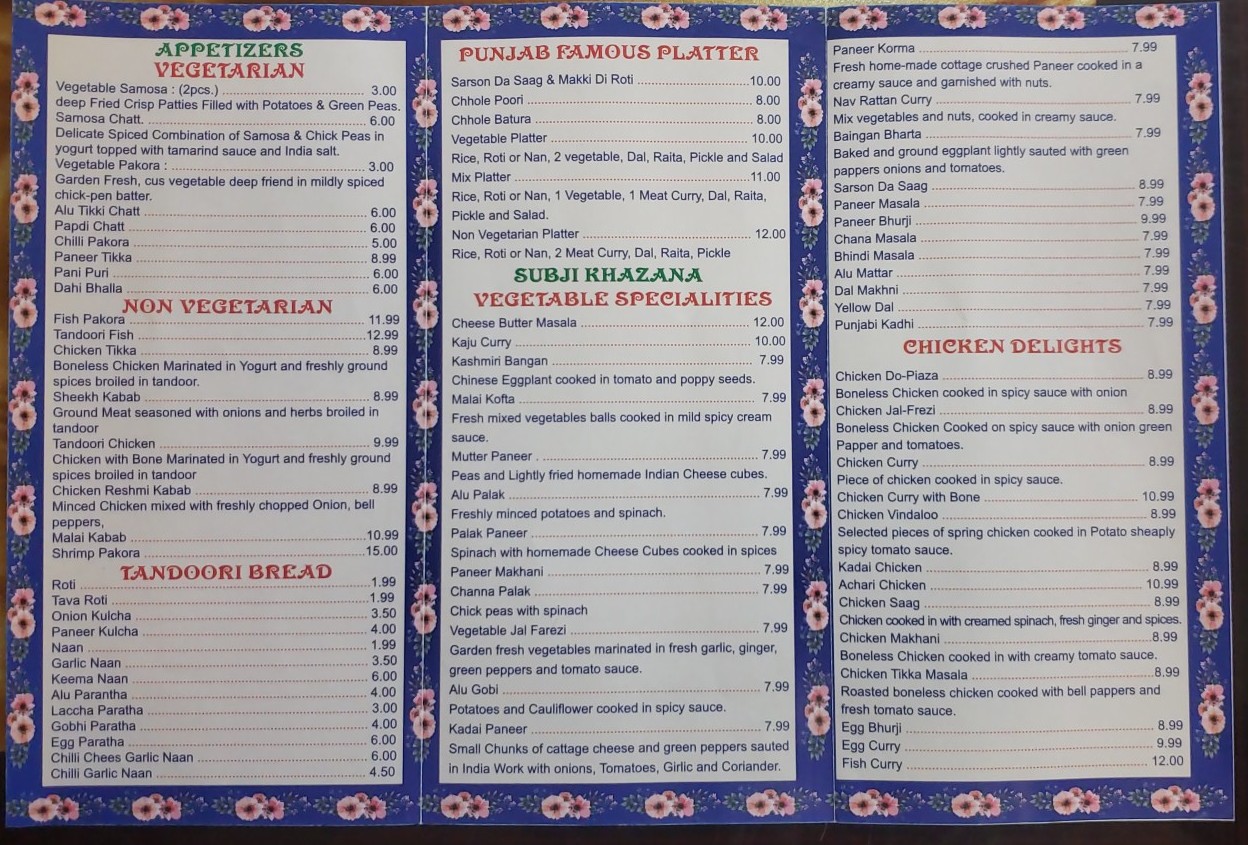 APPETIZERS
VEGETARIAN
Vegetable Samosa : (2pcs.) 3.00
deep Fried Crisp Patties Filled with Potatoes & Green Peas.
Samosa Chatt. 6.00
Delicate Spiced Combination of Samosa & Chick Peas in
yogurt topped with tamarind sauce and India salt.
Vegetable Pakora : 3.00
Garden Fresh, cus vegetable deep friend in mildly spiced
chick-pen batter.
Alu Tikki Chatt 6.00
Papdi Chatt 6.00
Chilli Pakora 5.00
Paneer Tikka 8.99
Pani Puri 6.00
Dahi Bhalla 6.00
NON VEGETARIAN
Fish Pakora 11.99
Tandoori Fish 12.99
Chicken Tikka 8.99
Boneless Chicken Marinated in Yogurt and freshly ground
spices broiled in tandoor.
Sheekh Kabab 8.99
Ground Meat seasoned with onions and herbs broiled in
tandoor
Tandoori Chicken 9.99
Chicken with Bone Marinated in Yogurt and freshly ground
spices broiled in tandoor
Chicken Reshmi Kabab 8.99
Minced Chicken mixed with freshly chopped Onion, bell
peppers,
Malai Kabab 10.99
Shrimp Pakora 15.00
TANDOORI BREAD
Roti 1.99
Tava Roti 1.99
Onion Kulcha 3.50
Paneer Kulcha 4.00
Naan 1.99
Garlic Naan 3.50
Keema Naan 6.00
Alu Parantha 4.00
Laccha Paratha 3.00
Gobhi Paratha 4.00
Egg Paratha 6.00
Chilli Chees Garlic Naan 6.00
Chilli Garlic Naan 4.50
PUNJAB FAMOUS PLATTER
Sarson Da Saag & Makki Di Roti 10.00
Chhole Poori 8.00
Chhole Batura 8.00
Vegetable Platter 10.00
Rice, Roti or Nan, 2 vegetable, Dal, Raita, Pickle and Salad
Mix Platter 11.00
Rice, Roti or Nan, 1 Vegetable, 1 Meat Curry, Dal, Raita,
Pickle and Salad.
Non Vegetarian Platter 12.00
Rice, Roti or Nan, 2 Meat Curry, Dal, Raita, Pickle
SUBJI KHAZANA
VEGETABLE SPECIALITIES
Cheese Butter Masala 12.00
Kaju Curry 10.00
Kashmiri Bangan 7.99
Chinese Eggplant cooked in tomato and poppy seeds.
Malai Kofta 7.99
Fresh mixed vegetables balls cooked in mild spicy cream
sauce.
Mutter Paneer . 7.99
Peas and Lightly fried homemade Indian Cheese cubes.
Alu Palak 7.99
Freshly minced potatoes and spinach.
Palak Paneer 7.99
Spinach with homemade Cheese Cubes cooked in spices
Paneer Makhani 7.99
Channa Palak 7.99
Chick peas with spinach
Vegetable Jal Farezi 7.99
Garden fresh vegetables marinated in fresh garlic, ginger,
green peppers and tomato sauce.
Alu Gobi 7.99
Potatoes and Cauliflower cooked in spicy sauce.
Kadai Paneer 7.99
Small Chunks of cattage cheese and green peppers sauted
in India Work with onions, Tomatoes, Girlic and Coriander.
Paneer Korma 7.99
Fresh home-made cottage crushed Paneer cooked in a
creamy sauce and garnished with nuts.
Nav Rattan Curry 7.99
Mix vegetables and nuts, cooked in creamy sauce.
Baingan Bharta 7.99
Baked and ground eggplant lightly sauted with green
pappers onions and tomatoes.
Sarson Da Saag 8.99
Paneer Masala 7.99
Paneer Bhurji 9.99
Chana Masala 7.99
Bhindi Masala 7.99
Alu Mattar 7.99
Dal Makhni 7.99
Yellow Dal 7.99
Punjabi Kadhi 7.99
CHICKEN DELIGHTS
Chicken Do-Piaza 8.99
Boneless Chicken cooked in spicy sauce with onion
Chicken Jal-Frezi 8.99
Boneless Chicken Cooked on spicy sauce with onion green
Papper and tomatoes.
Chicken Curry 8.99
Piece of chicken cooked in spicy sauce.
Chicken Curry with Bone 10.99
Chicken Vindaloo 8.99
Selected pieces of spring chicken cooked in Potato sheaply
spicy tomato sauce.
Kadai Chicken 8.99
Achari Chicken 10.99
Chicken Saag 8.99
Chicken cooked in with creamed spinach, fresh ginger and spices.
Chicken Makhani 8.99
Boneless Chicken cooked in with creamy tomato sauce.
Chicken Tikka Masala 8.99
Roasted boneless chicken cooked with bell pappers and
fresh tomato sauce.
Egg Bhurji 8.99
Egg Curry 9.99
Fish Curry 12.00